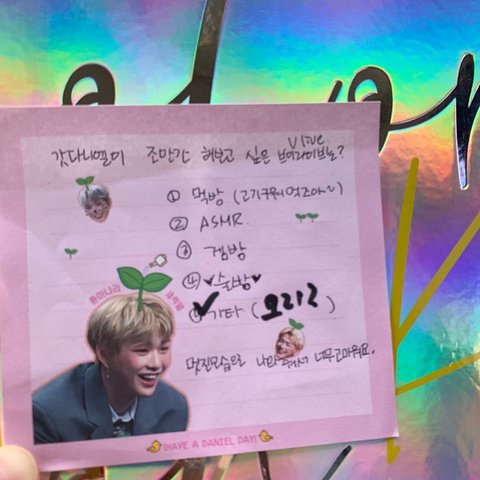 갓다니엘이 조만간 해보고 싶은 브이라이브는?
Vlive.
① 먹방 (고기구워먹즈아~)
② ASMR.
③ 겜방
④ ♥술방♥
✔기타 (요리)
멋진모습으로 나와줘서 너무고마워요.
HAVE A DANIEL DAY!